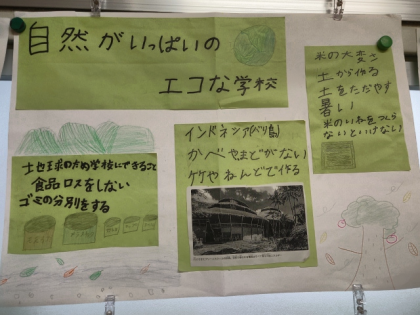 自然がいっぱいの
エコな学校
米の大変さ
土から作る
土をたがやす
暑い
米のいねをつくら
ないといけない
インドネシア(バリ島)
かべやまどがない
竹やねんどで作る
地球のため学校にできること
食品ロスをしない
ゴミの分別をする